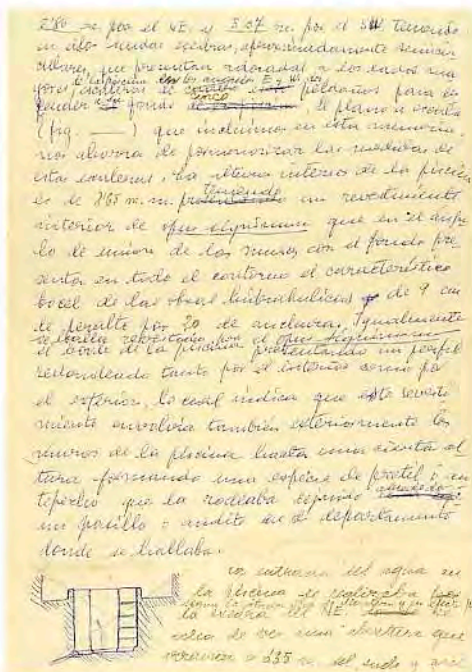 2'80 m. por el NE. y 3'37 m. por el SW. teniendo
en ellos sendas escaleras, aproximadamente semicir-
culares, que presentan adosadas a los lados ma-
yores, a excepción en los ángulos E y W,
escaleras de cinco peldaños para
fondo El plano a escala
(fig. ___) que incluimos en esta memoria
nos ahorra de pormenorizar las medidas de
estas escaleras. La altura interior de la piscina
es de m. m. teniendo un revestimiento
interior de opus signinum que en el ángu-
lo de unión de los muros con el fondo pre-
senta en todo el contorno el característico
bocel de las obras hidráulicas de 9 cm
de peralte por 20 de anchura. Igualmente
se halla revestido por el opus signinum
el borde de la piscina presentando un perfil
redondeado tanto por el interior como por
el exterior, lo cual indica que este revesti-
miento envolvía también exteriormente los
muros de la piscina hasta una cierta al-
tura formando una especie de pretil o an-
tepecho que la rodeaba dejando alrededor
un pasillo o andito en el departamento
donde se hallaba.
La entrada del agua en
la piscina se realizaba por
la escalera del NE.
una abertura que
a 235 m. del suelo y